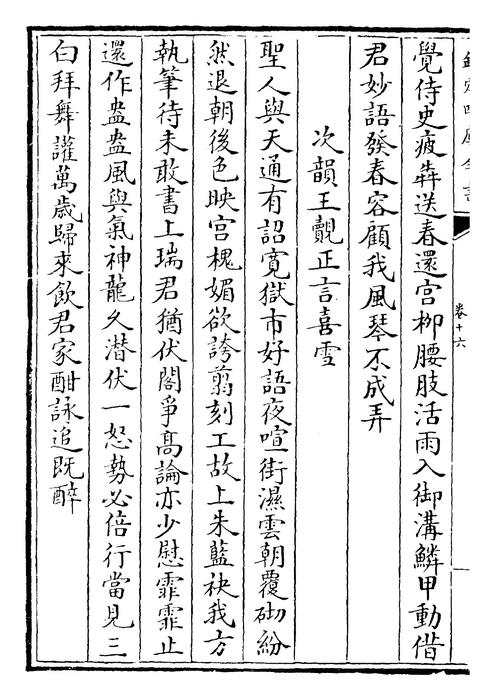 卷十六
覺侍史疲犇送春還宫柳腰肢活雨入御溝鱗甲動借
君妙語發春容顧我風琴不成弄
次韻王覿正言喜雪
聖人與天通有詔寛獄市好語夜喧街濕雲朝覆砌紛
然退朝後色映宫槐媚欲誇翦刻工故上朱藍袂我方
執筆待未敢書上瑞君猶伏閤爭髙論亦少慰霏霏止
還作盎盎風與氣神龍久潛伏一怒勢必倍行當見三
白拜舞讙萬歲歸來飲君家酣詠追既醉